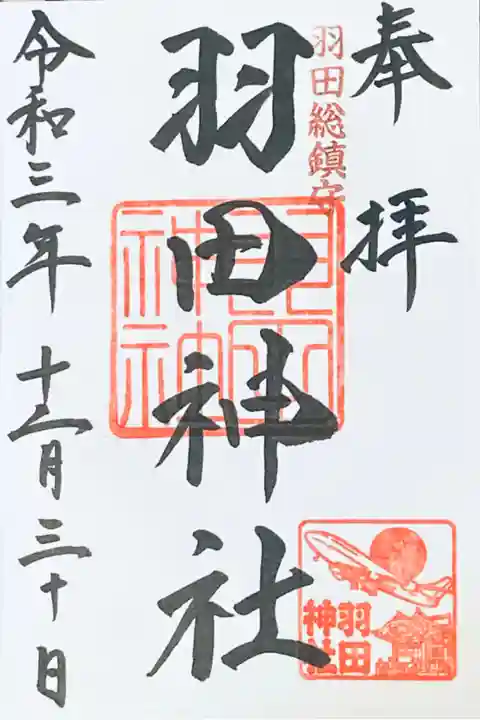 奉拝
羽田総鎮守
羽田神社
羽田
神社
令和三年十二月三十日